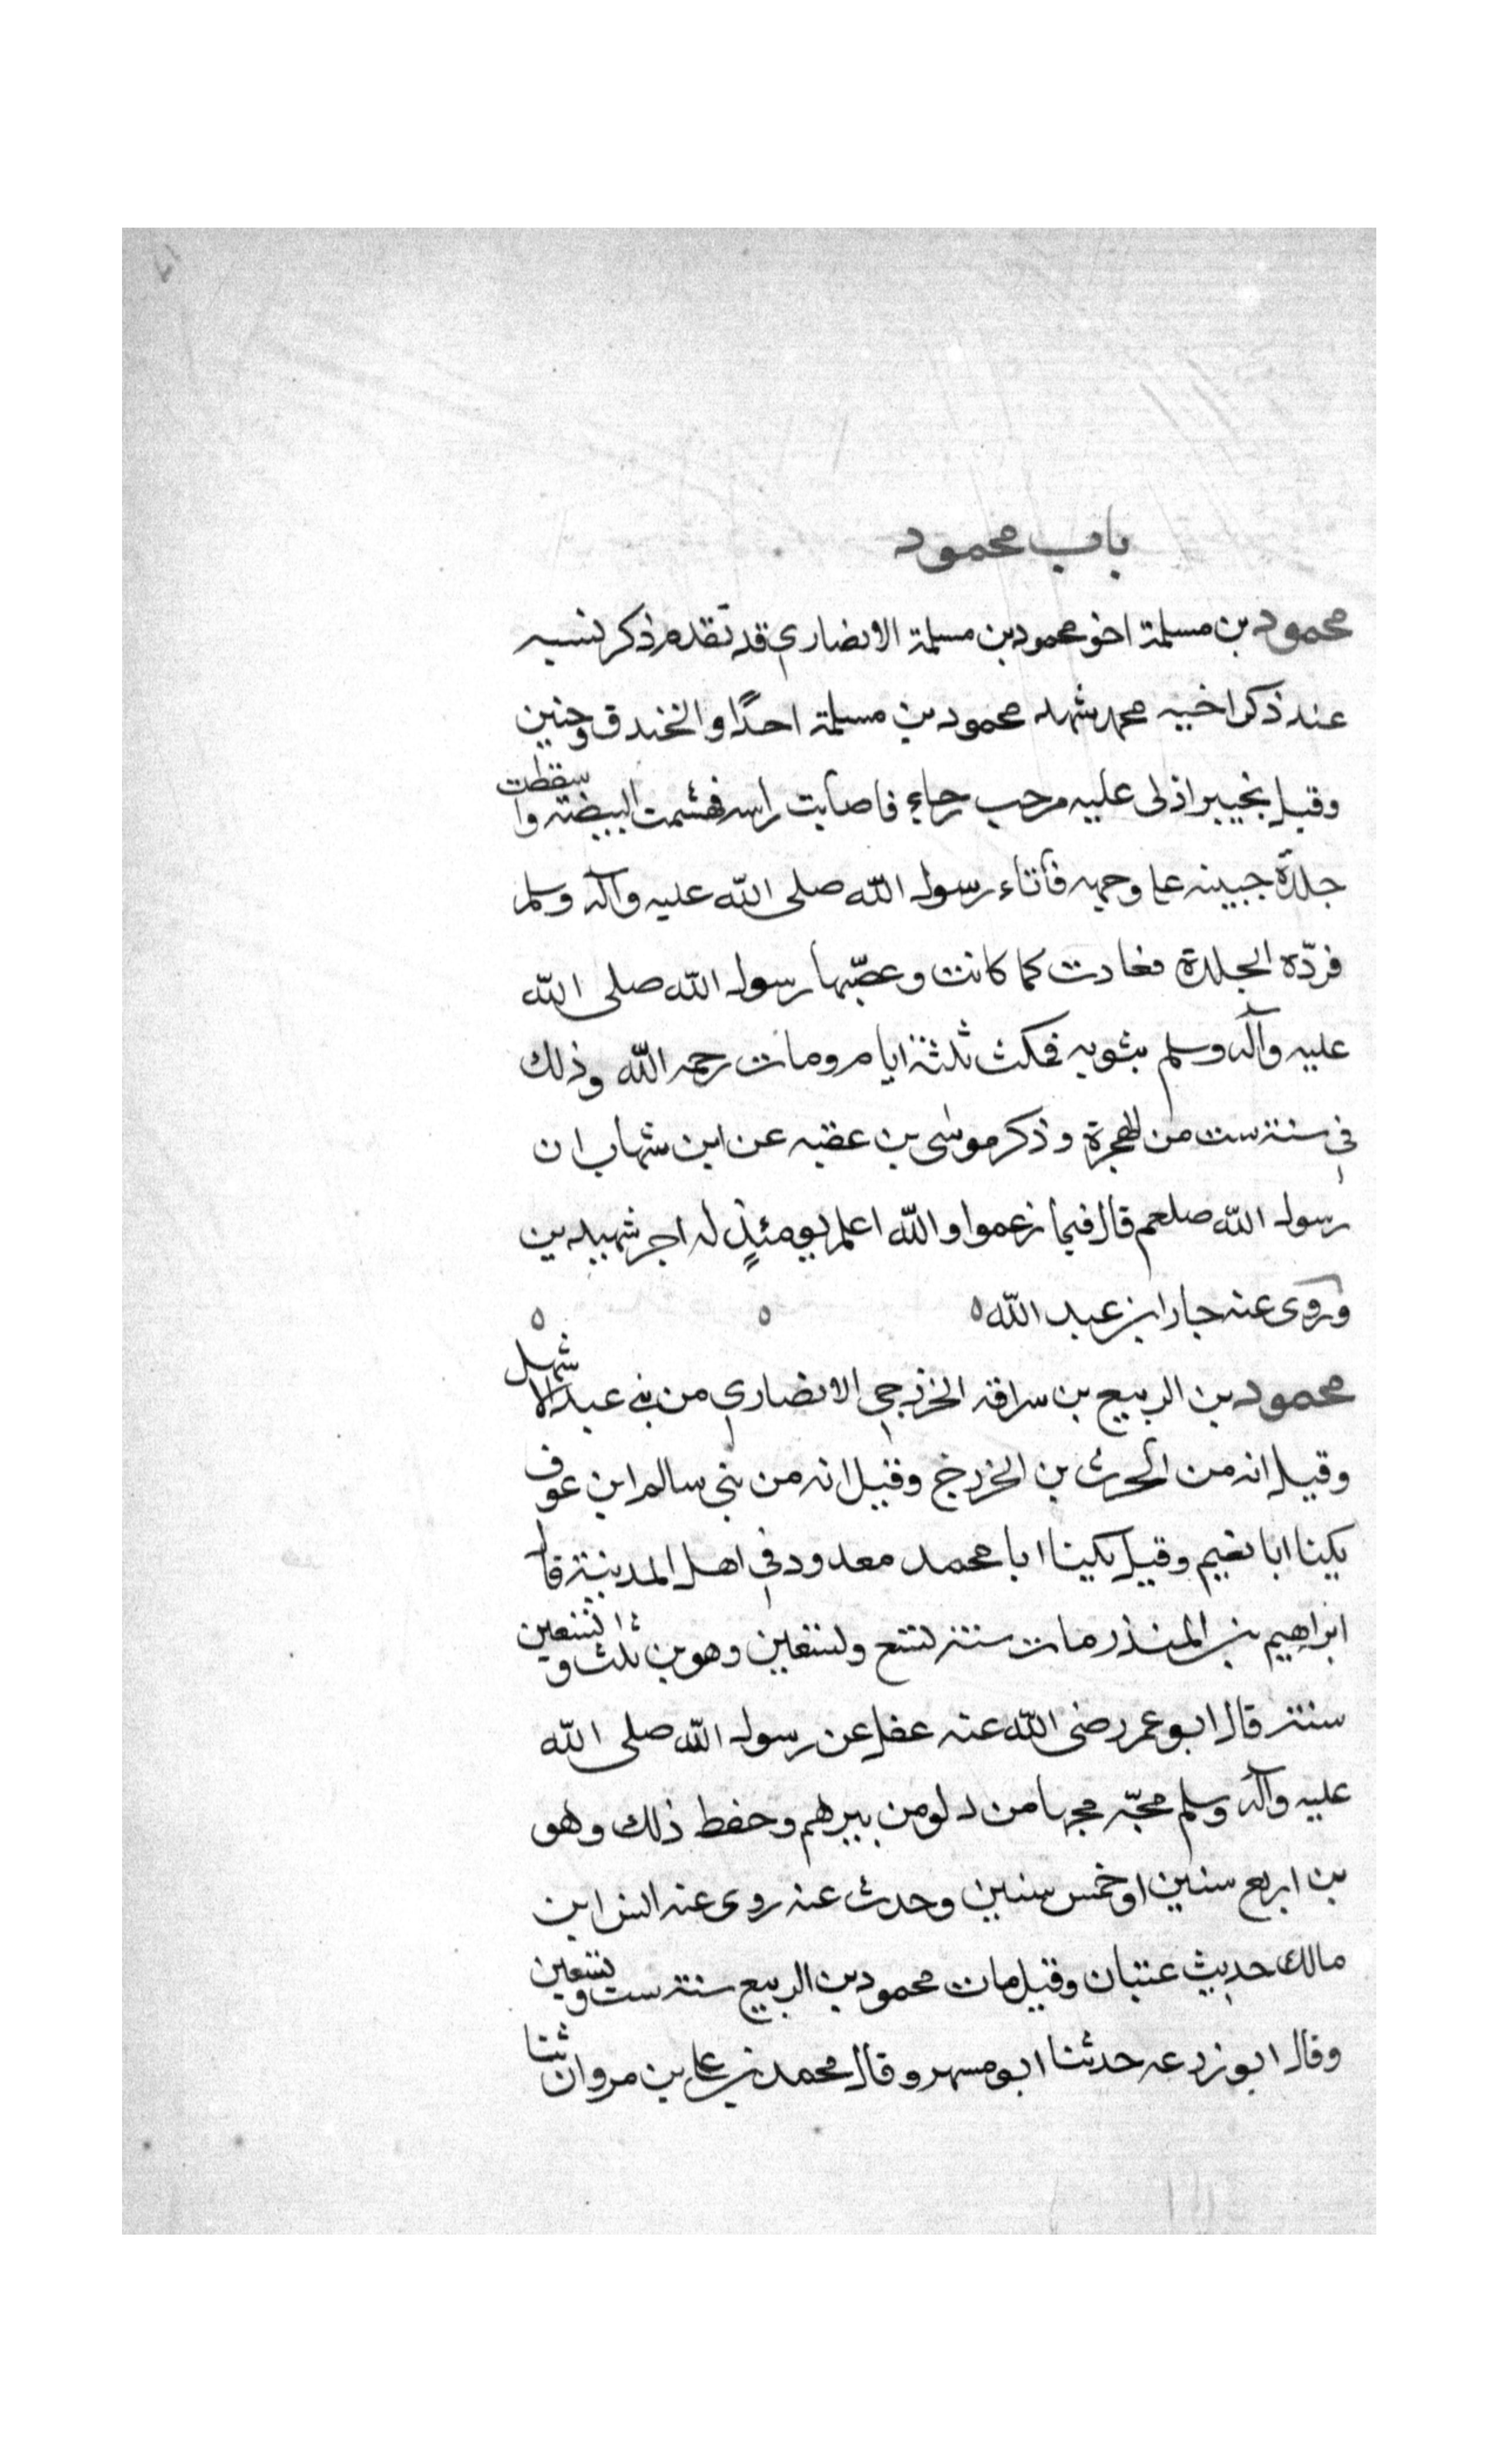 باب محمود
محمود بن مسلمة اخو محمود بن مسلمة الانصاري قد تقدم ذكر نسبه
عند ذكر اخيه محمد شهد محمود بن مسلمة احدًا والخندق وحنين
وقيل بخيبر اذلى عليه مرحب رحاء فاصابت راسه فهشمت البيضة واسقطت
جلدة جبينه على وجهه فأتاء رسول الله صلى الله عليه وآله وسلم
فردّه الجلدة فعادت كما كانت وعصّبها رسول الله صلى الله
عليه وآله وسلم بثوبه فمكث ثلثة ايام ومات رحمه الله وذلك
في سنة ست من الهجرة وذكر موسى بن عقبه عن ابن شهاب ان
رسول الله صلعم قال فيما زعموا والله اعلم يومئذٍ له اجر شهيدين
وروى عنه جابر ابن عبد الله
محمود بن الربيع بن سراقة الخزرجي الانصاري من بني عبد الاشهل
وقيل انه من الحرث بن الخزرج وقيل انه من بني سالم ابن عوف
يكينا ابا نعيم وقيل يكينا ابا محمد معدود في اهل المدينة قال
ابراهيم بن المنذر مات سنة تسع وتسعين وهو بن ثلث وتسعين
سنة قال ابو عمر رضى الله عنه عقل عن رسول الله صلى الله
عليه وآله وسلم مجّه مجها من دلو من بيرهم وحفظ ذلك وهو
بن اربع سنين او خمس سنين وحدث عنه روى عنه انس ابن
مالك حديث عتبان وقيل مات محمود بن الربيع سنة ست وتسعين
وقال ابو زرعه حدثنا ابو مسهر وقال محمد بن علي بن مروان ثنا